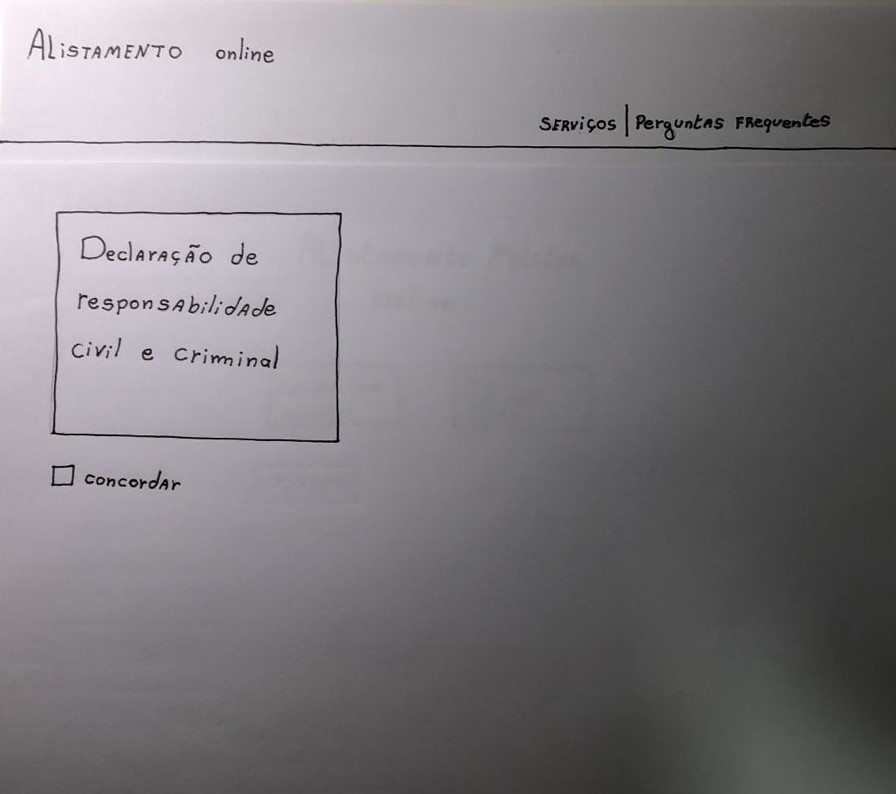 Alistamento online
Serviços | Perguntas Frequentes
Declaração de
responsabilidade
civil e criminal
concordar